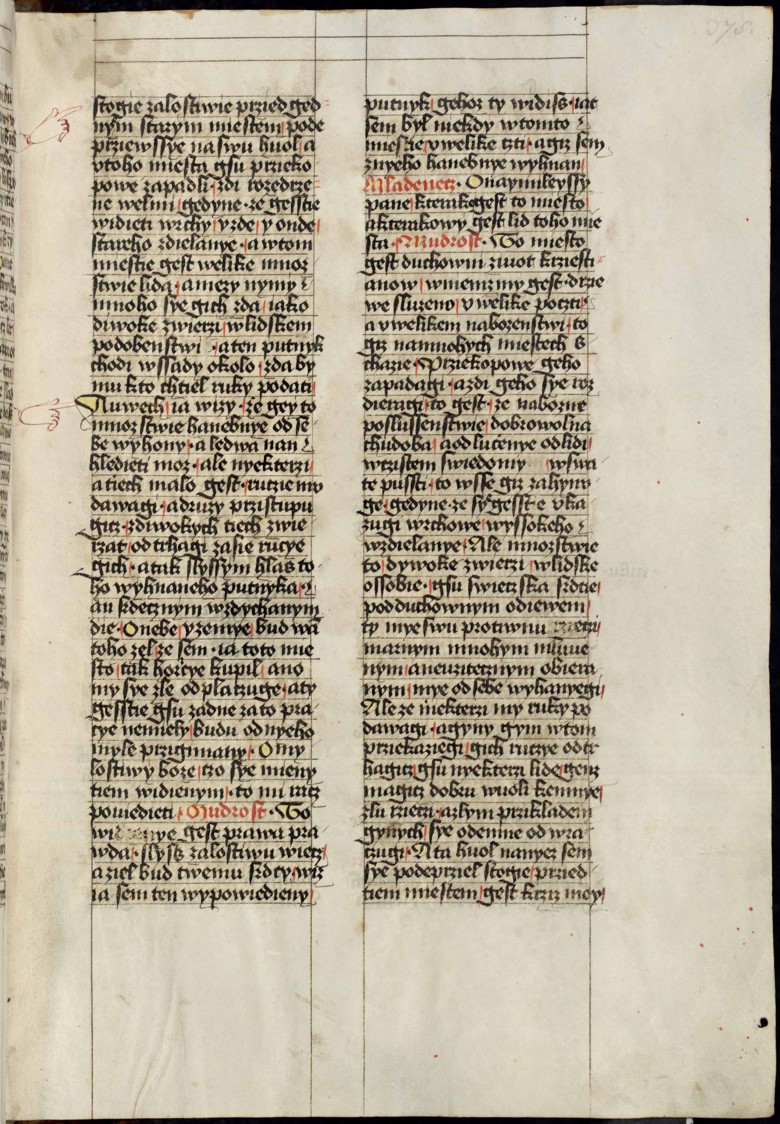 stogie zalostiwie przied ged
nym starym miestem pode
prziewssye na swu huol a
vtoho miesta gsu przieko
powe zapadli zdi rozedrze
ne welmi gedyne ze gesstie
widieti wrchy yzde y onde
stareho zdielanye a wtom
miestie gest welike mnoz
stwie lida a mezy nymy
mnoho sye gich zda iako
diwoke zwierzi w lidskem
podobenstwi a ten putnyk
chodi wssady okolo zda by
mu kto chtiel ruky podati
Auwech ia wizy ze gey to
mnozstwie hanebnye od se
be wyhony a ledwa nan
hledieti moz ale nyekterzi
a tiech malo gest rucie mu
dawagi a druzy przistupu
gicz zdiwokych tiech zwie
rzat odtrhagi zasie rucye
gich a tak slyssym hlas to
ho wyhnaneho putnyka
an srdecznym wzdychanym
die O nebe y zemye bud wa
toho zel ze sem ia toto mie
sto tak horzye kupil ano
my sye zle odplaczuge a ty
gesstie gsu zadne za to pra
cye nemiely budu od nyeho
myle przigimany O my
lostiwy boze czo sye mieny
tiem widienym to mi racz
powiedieti Mudrost To
gest prawa pra
wda slyss zalostiwu wiecz
a ziel bud twemu srdcy wiz
ia sem ten wypowiedieny
putnyk gehoz ty widiss iaz
sem byl niekdy w tomto
miestie v welike czti a giz sem
znyeho hanebnye wyhnan
Mladenecz O naymileyssy
pane kterak gest to miesto
a kterakowy gest lid toho mie
sta Mudrost To miesto
gest duchowni ziwot krziesti
anow w niemz my gest drzie
we sluzeno v welike poczti
a v welikem naboze̅nstwi to
giz na mnohych miestech s
chazie Prziekopowe geho
zapadagi a zdi geho sye roz
dieragi to gest ze nabozne
poslussenstwie dobrowolna
chudoba a odluczenye od lidi
w czistem swiedomy w swa
te pussti to wsse giz zahynu
ge gedyne ze sye gesstie vka
zugi wrchowe wyssokeho
wzdielanye Ale mnozstwie
to dywoke zwierzi w lidske
ossobie gsu swietska srdcie
pod duchownym odiewem
ty mye swu protiwnu
marnym mnohym mluwe
nym a neuzitecznym obiera
nym mye od sebe wyhanyegi
Ale ze niekterzi my ruky po
dawagi a gyny gym w tom
przickazegi gich ruczye odtr
hagicz gsu nyekterzi lide genz
magicz dobru wuoli kemnye
zlu rzieczi a zlym przikladem
gynych sye odemne odwra
czugi A ta huol nanyez sem
sye podeprziel stogie przied
tiem miestem gest krziz moy